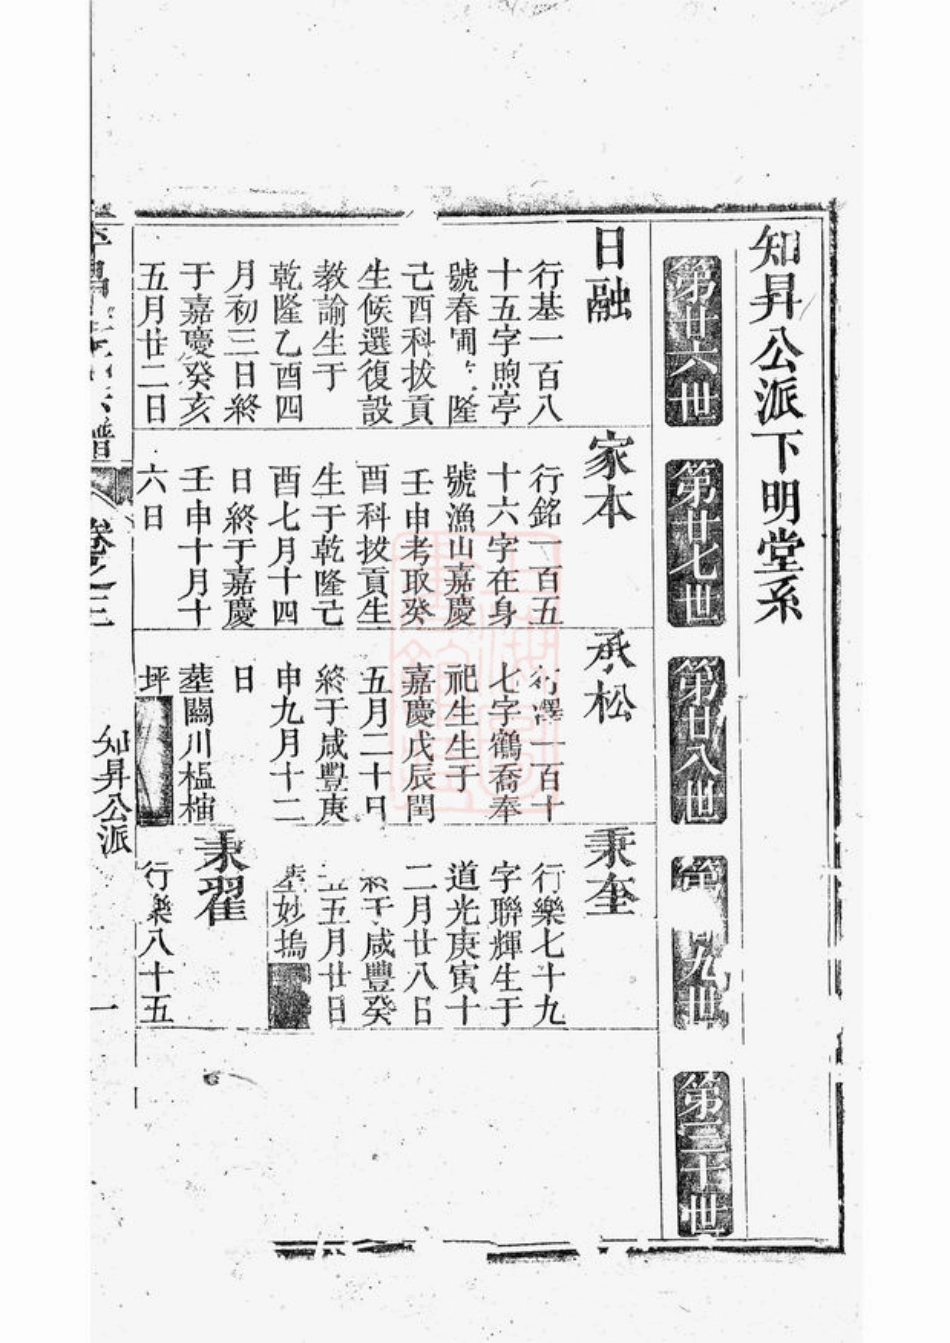 知昇公派下明堂系
第廿六世
第廿七世
第廿八世
第 九世
第三十世
日融
行基一百八
十五字煦亭
號春圃 隆
己酉科拔貢
生候選復設
教諭生于
乾隆乙酉四
月初三日終
于嘉慶癸亥
五月廿二日
家本
行銘一百五
十六字在身
號漁山嘉慶
壬申考取癸
酉科拔貢生
生于乾隆己
酉七月十四
日終于嘉慶
壬申十月十
六日
承松
行澤一百十
七字鶴喬奉
祀生生于
嘉慶戊辰閏
五月二十日
終于咸豐庚
申九月十二
日
塟關川榅㯶
坪
秉奎
行樂七十九
字聯輝生于
道光庚寅十
二月廿八日
終于咸豐癸
五月廿日
塟妙塢
秉翟
行樂八十五
譜
卷之三
知昇公派
一